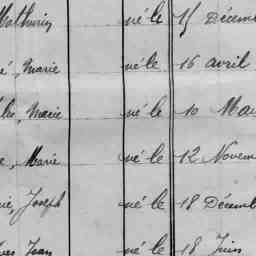 Mathurin né le 15 Décem
é, Marie né le 16 avril
Marie né le 10 Mai
e, Marie né le 12 Novem
ie, Joseph né le 18 Décemb
Jean né le 18 Juin